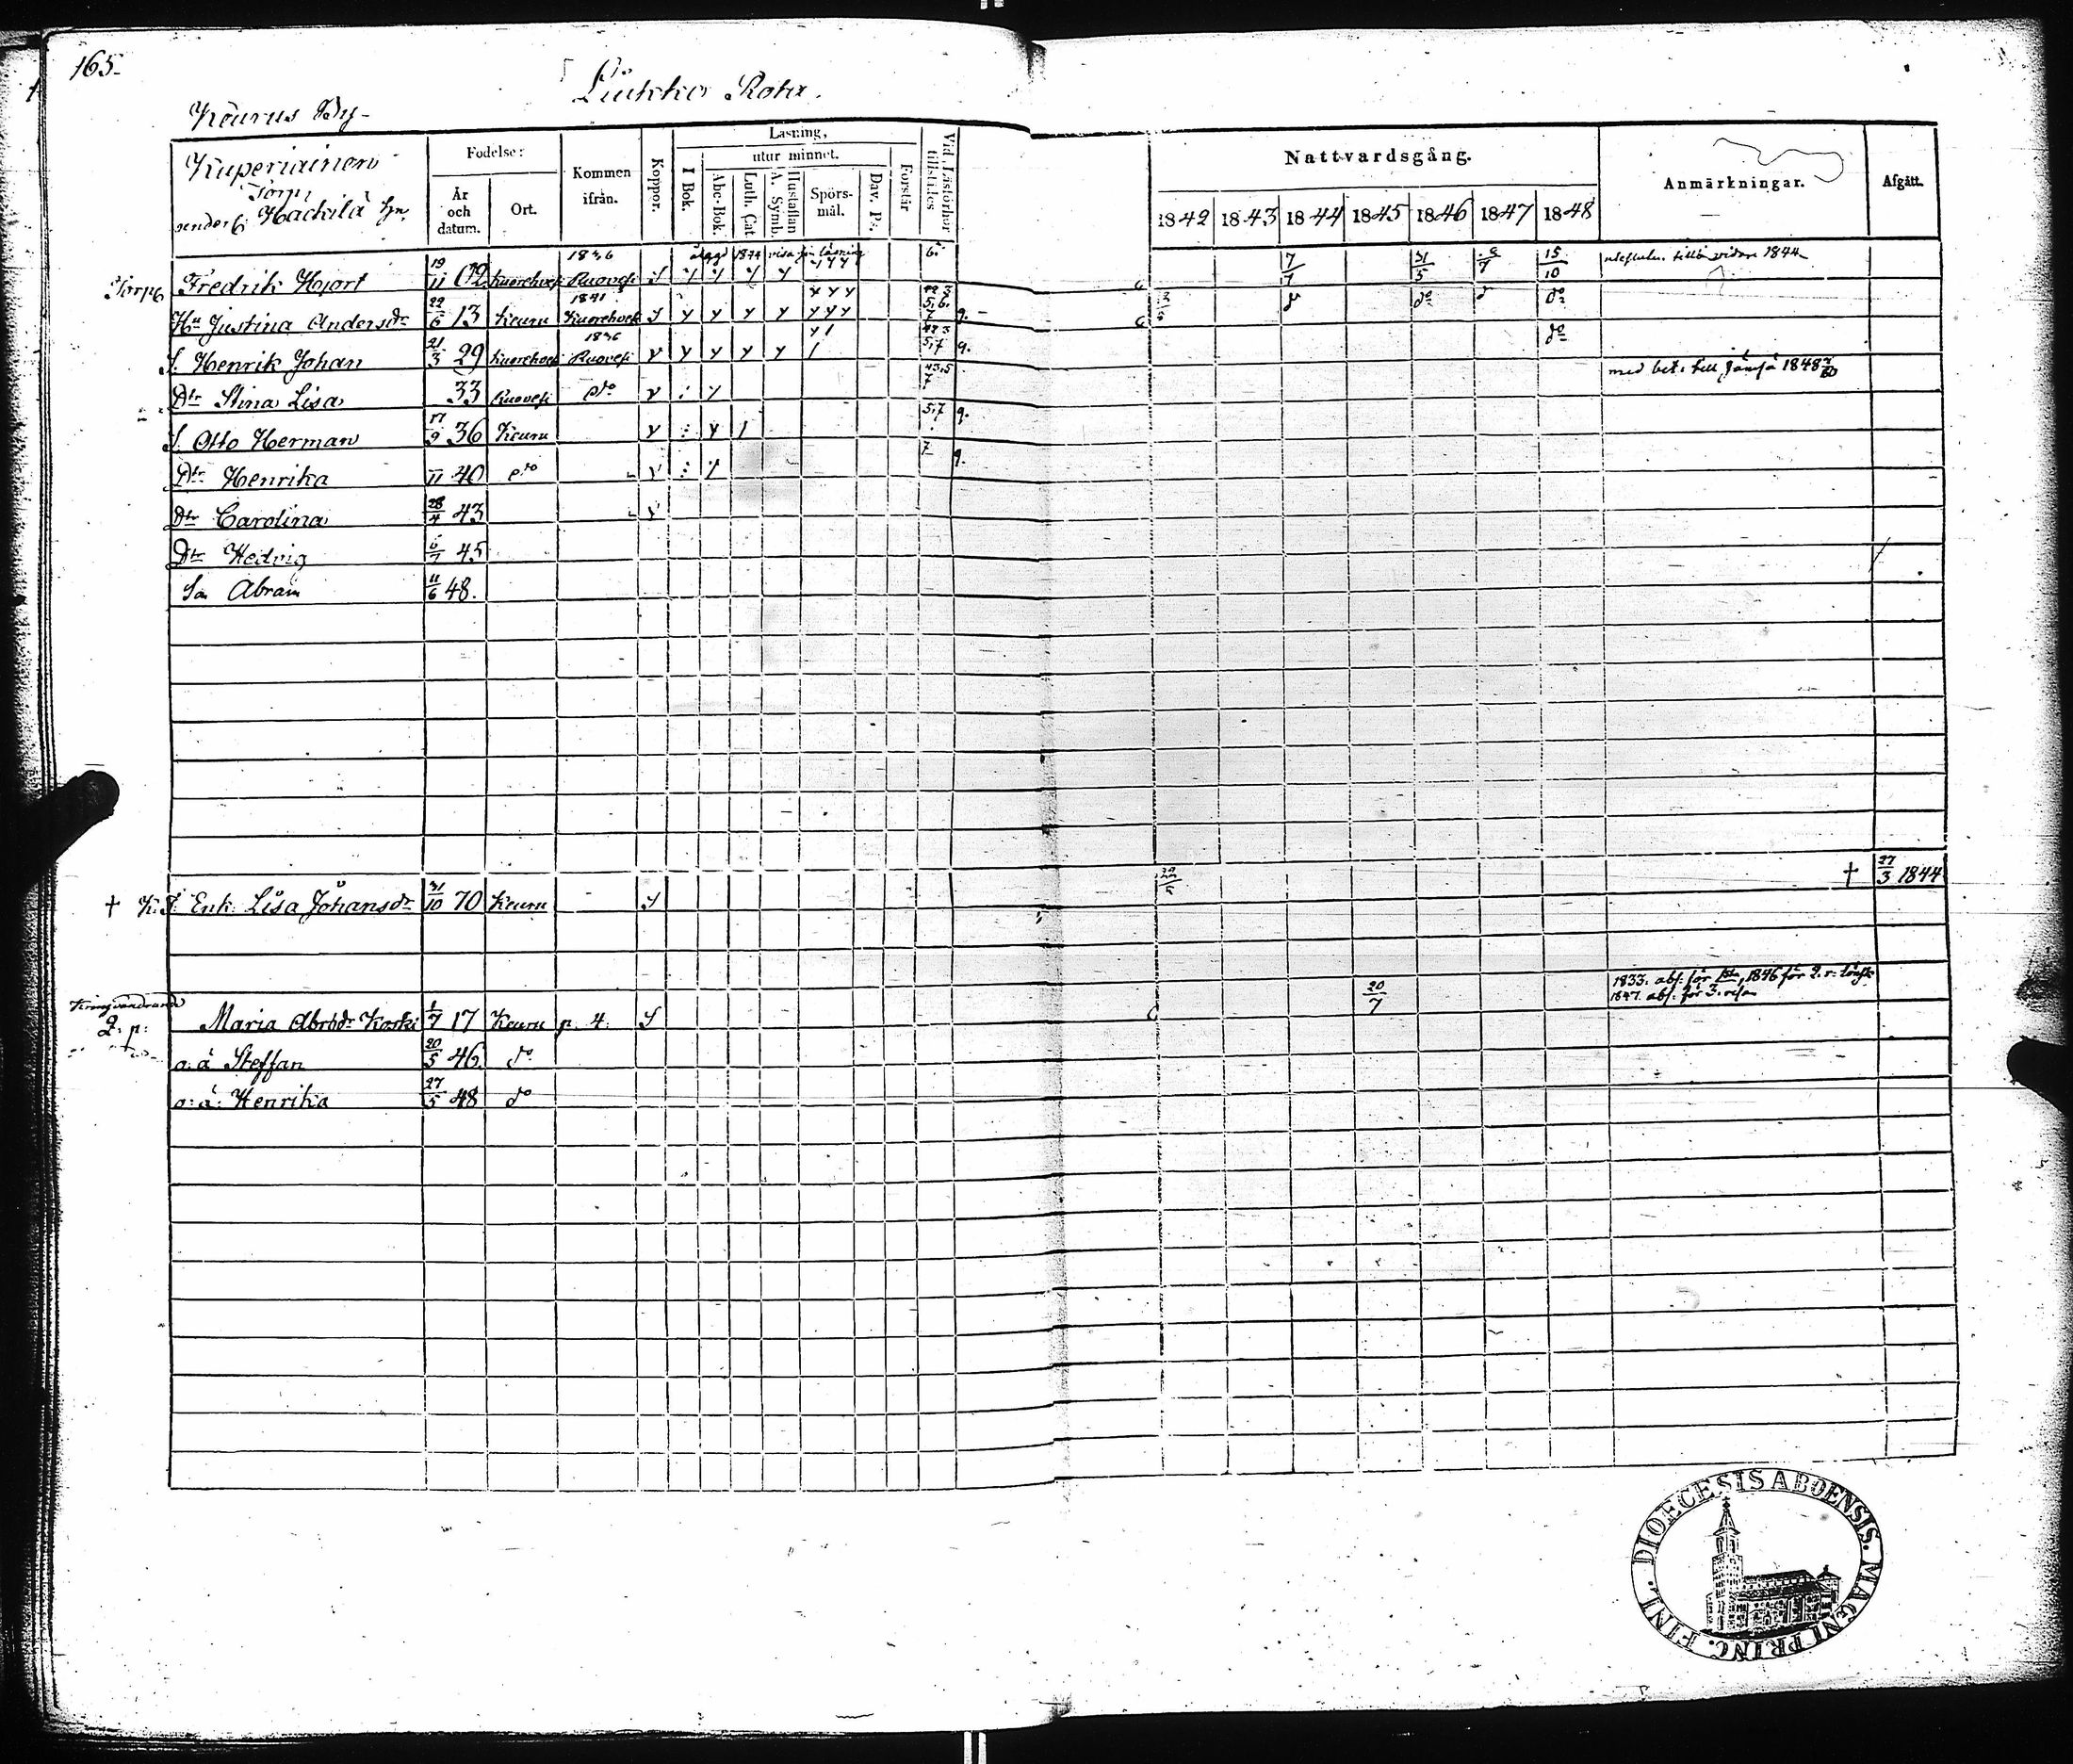 165.
Liukko Rota.
Keurus By
Kuperiainen
Torp
under 6 Hackilä hn.
Födelse:
År och datum.
Ort.
Kommen ifrån.
Koppor.
Läsning,
I Bok.
utur minnet.
Abc-Bok.
Luth. Cat.
Hustaflan A. Symb.
Spörs-mål.
Dav. Ps.
Förstår
Vid Läsförhör tillstädes
Nattvardsgång.
1842 1843 1844 1845 1846 1847 1848
Anmärkningar.
Afgått.
Torp Fredrik Hjort 19/11 02 Kuorehvesi 1836 Ruovesi 6. 7/7 31/5 15/10 1844
Hu Justina Andersdr 22/6 13 Keuru 1841 Kuorehvesi y y y y y y y y 5,6. 7 9. do do
S. Henrik Johan 21/3 29 Kuorehvesi 1836 Ruovesi y y y y y 5,7 9. do
Dtr Stina Lisa 33 Ruovesi dto y med bet. till Jämsä 1848
S. Otto Herman 17/9 36 Keuru y y 5,7 9.
Dtr Henrika 11 40 dto y 7 9.
Dtr Carolina 28/4 43 y
Dtr Hedvig 6/7 45
Son Abram 11/6 48.
† Enk. Lisa Johansdr 31/10 70 Keuru † 27/3 1844
Kringvandrande
Q: p: Maria Abrsdr Koski 1/7 17 Keuru p. 4. 20/7 1833. abs. för 1sta, 1846 för 2. r. lönsk.
1847. abs. för 3. resan
o: ä Steffan 20/5 46. do
o: ä: Henrika 27/5 48 do
DIOECESIS ABOENSIS. MAGNI PRINC. FINL.